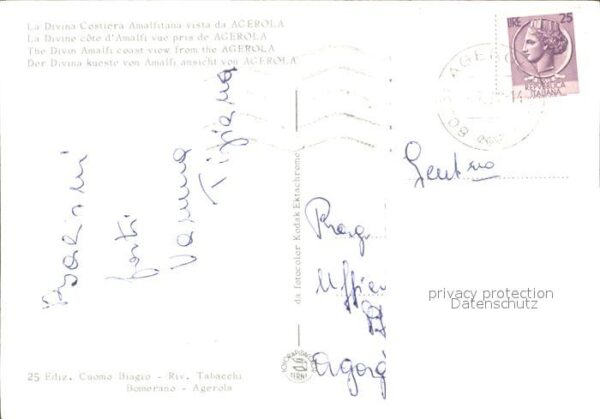 La Divina Costiera Amalfitana vista da AGEROLA
La Divine côte d'Amalfi vue pris de AGEROLA
The Divin Amalfi coast view from the AGEROLA
Der Divina kueste von Amalfi ansicht von AGEROLA
LIRE 25
REPVBBLICA
ITALIANA
AGEROLA
Bacioni
forti
Vanna
Tiziana
da fotocolor Kodak Ektachrome
Gent.ma
Rag.
Uffici
privacy protection
Datenschutz
25 Ediz. Cuomo Biagio - Riv. Tabacchi
Bomerano - Agerola